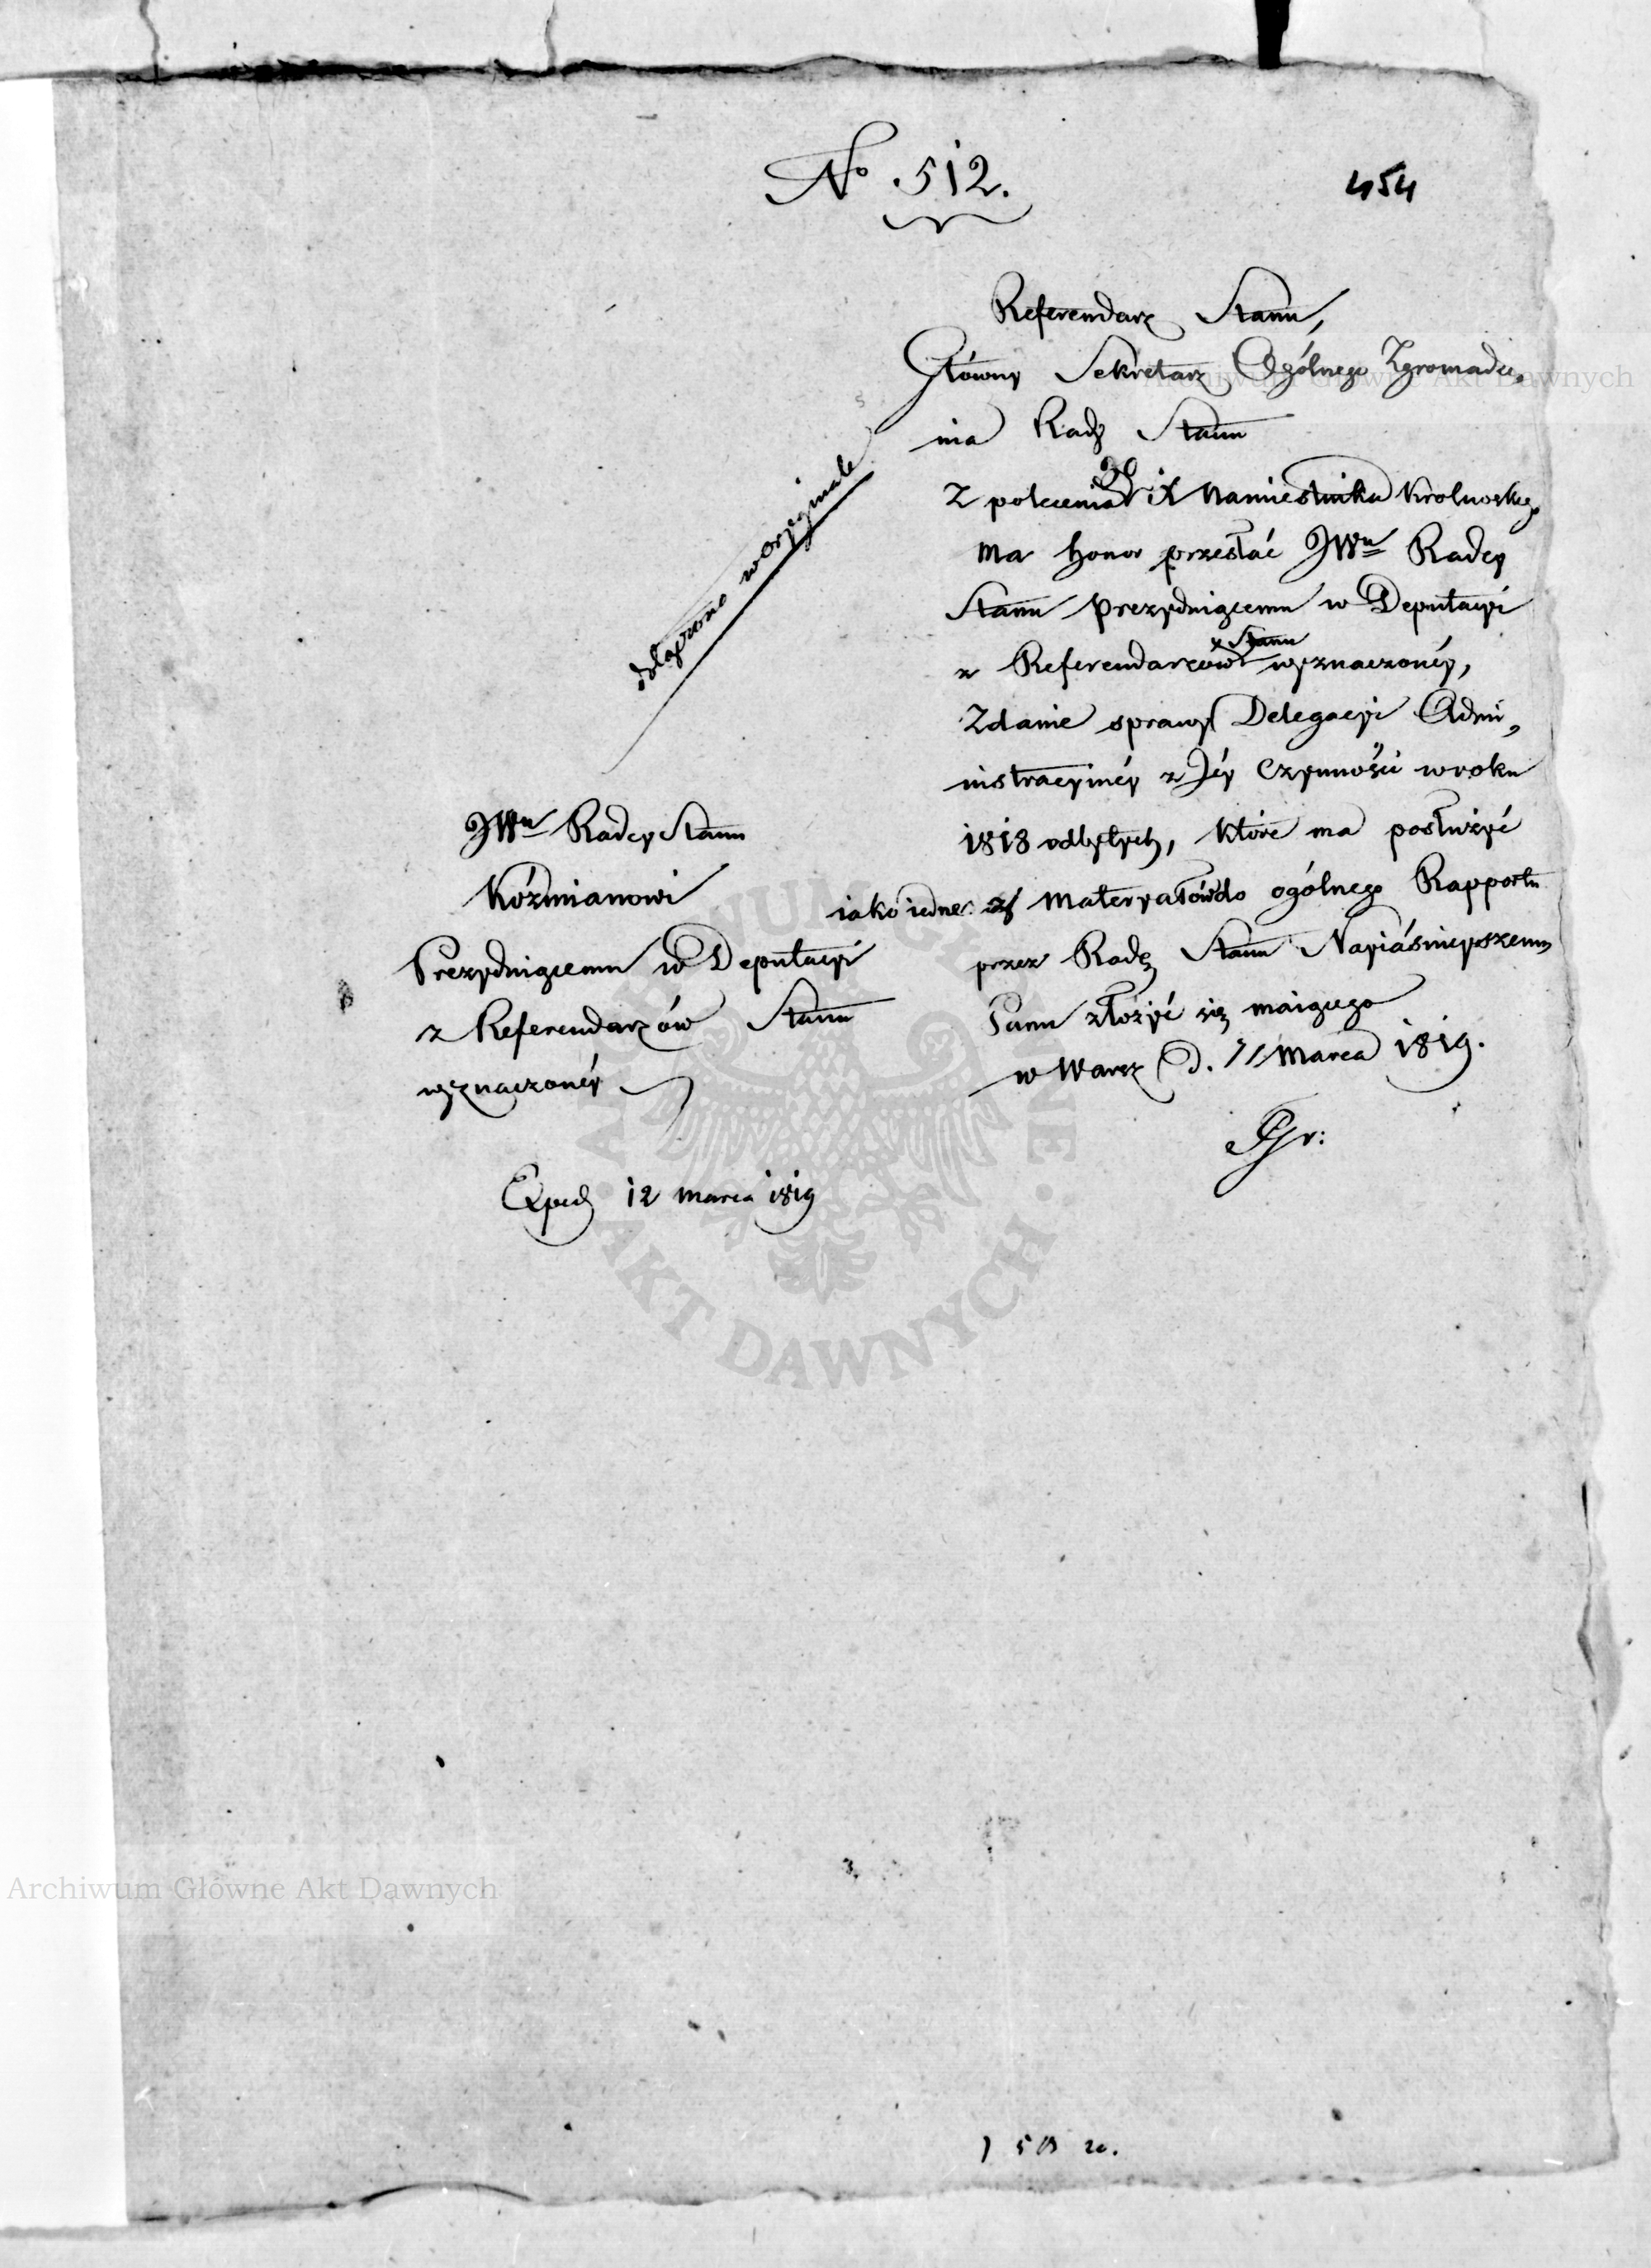 No. 512.
454
Referendarz Stanu,
Główny Sekretarz Ogólnego Zgromadze,
nia Rady Stanu
Z polecenia JO iX Namiestnika Krolewskiego
ma honor przesłać JWu Radcy
Stanu Prezyduiącemu w Deputacyi
z Referendarzów Stanu wyznaczonéy,
Zdanie sprawy Delegacyi Admi,
nistracyinéy z Jéy Czynności w roku
1818 odbytych, które ma posłużyć
iako iedne z Materyałów do ogólnego Rapportu
przez Radę Stanu Nayiáśnieyszemu
Panu złożyć się maiącego
w Warsz d. 11 Marca 1819.
JWu Radcy Stanu
Koźmianowi
Prezyduiącemu w Deputacyi
z Referendarzów Stanu
wyznaczonéy
Exped 12 marca 1819
w Oryginale
Archiwum Główne Akt Dawnych
ARCHIWUM GŁÓWNE
AKT DAWNYCH
Archiwum Główne Akt Dawnych